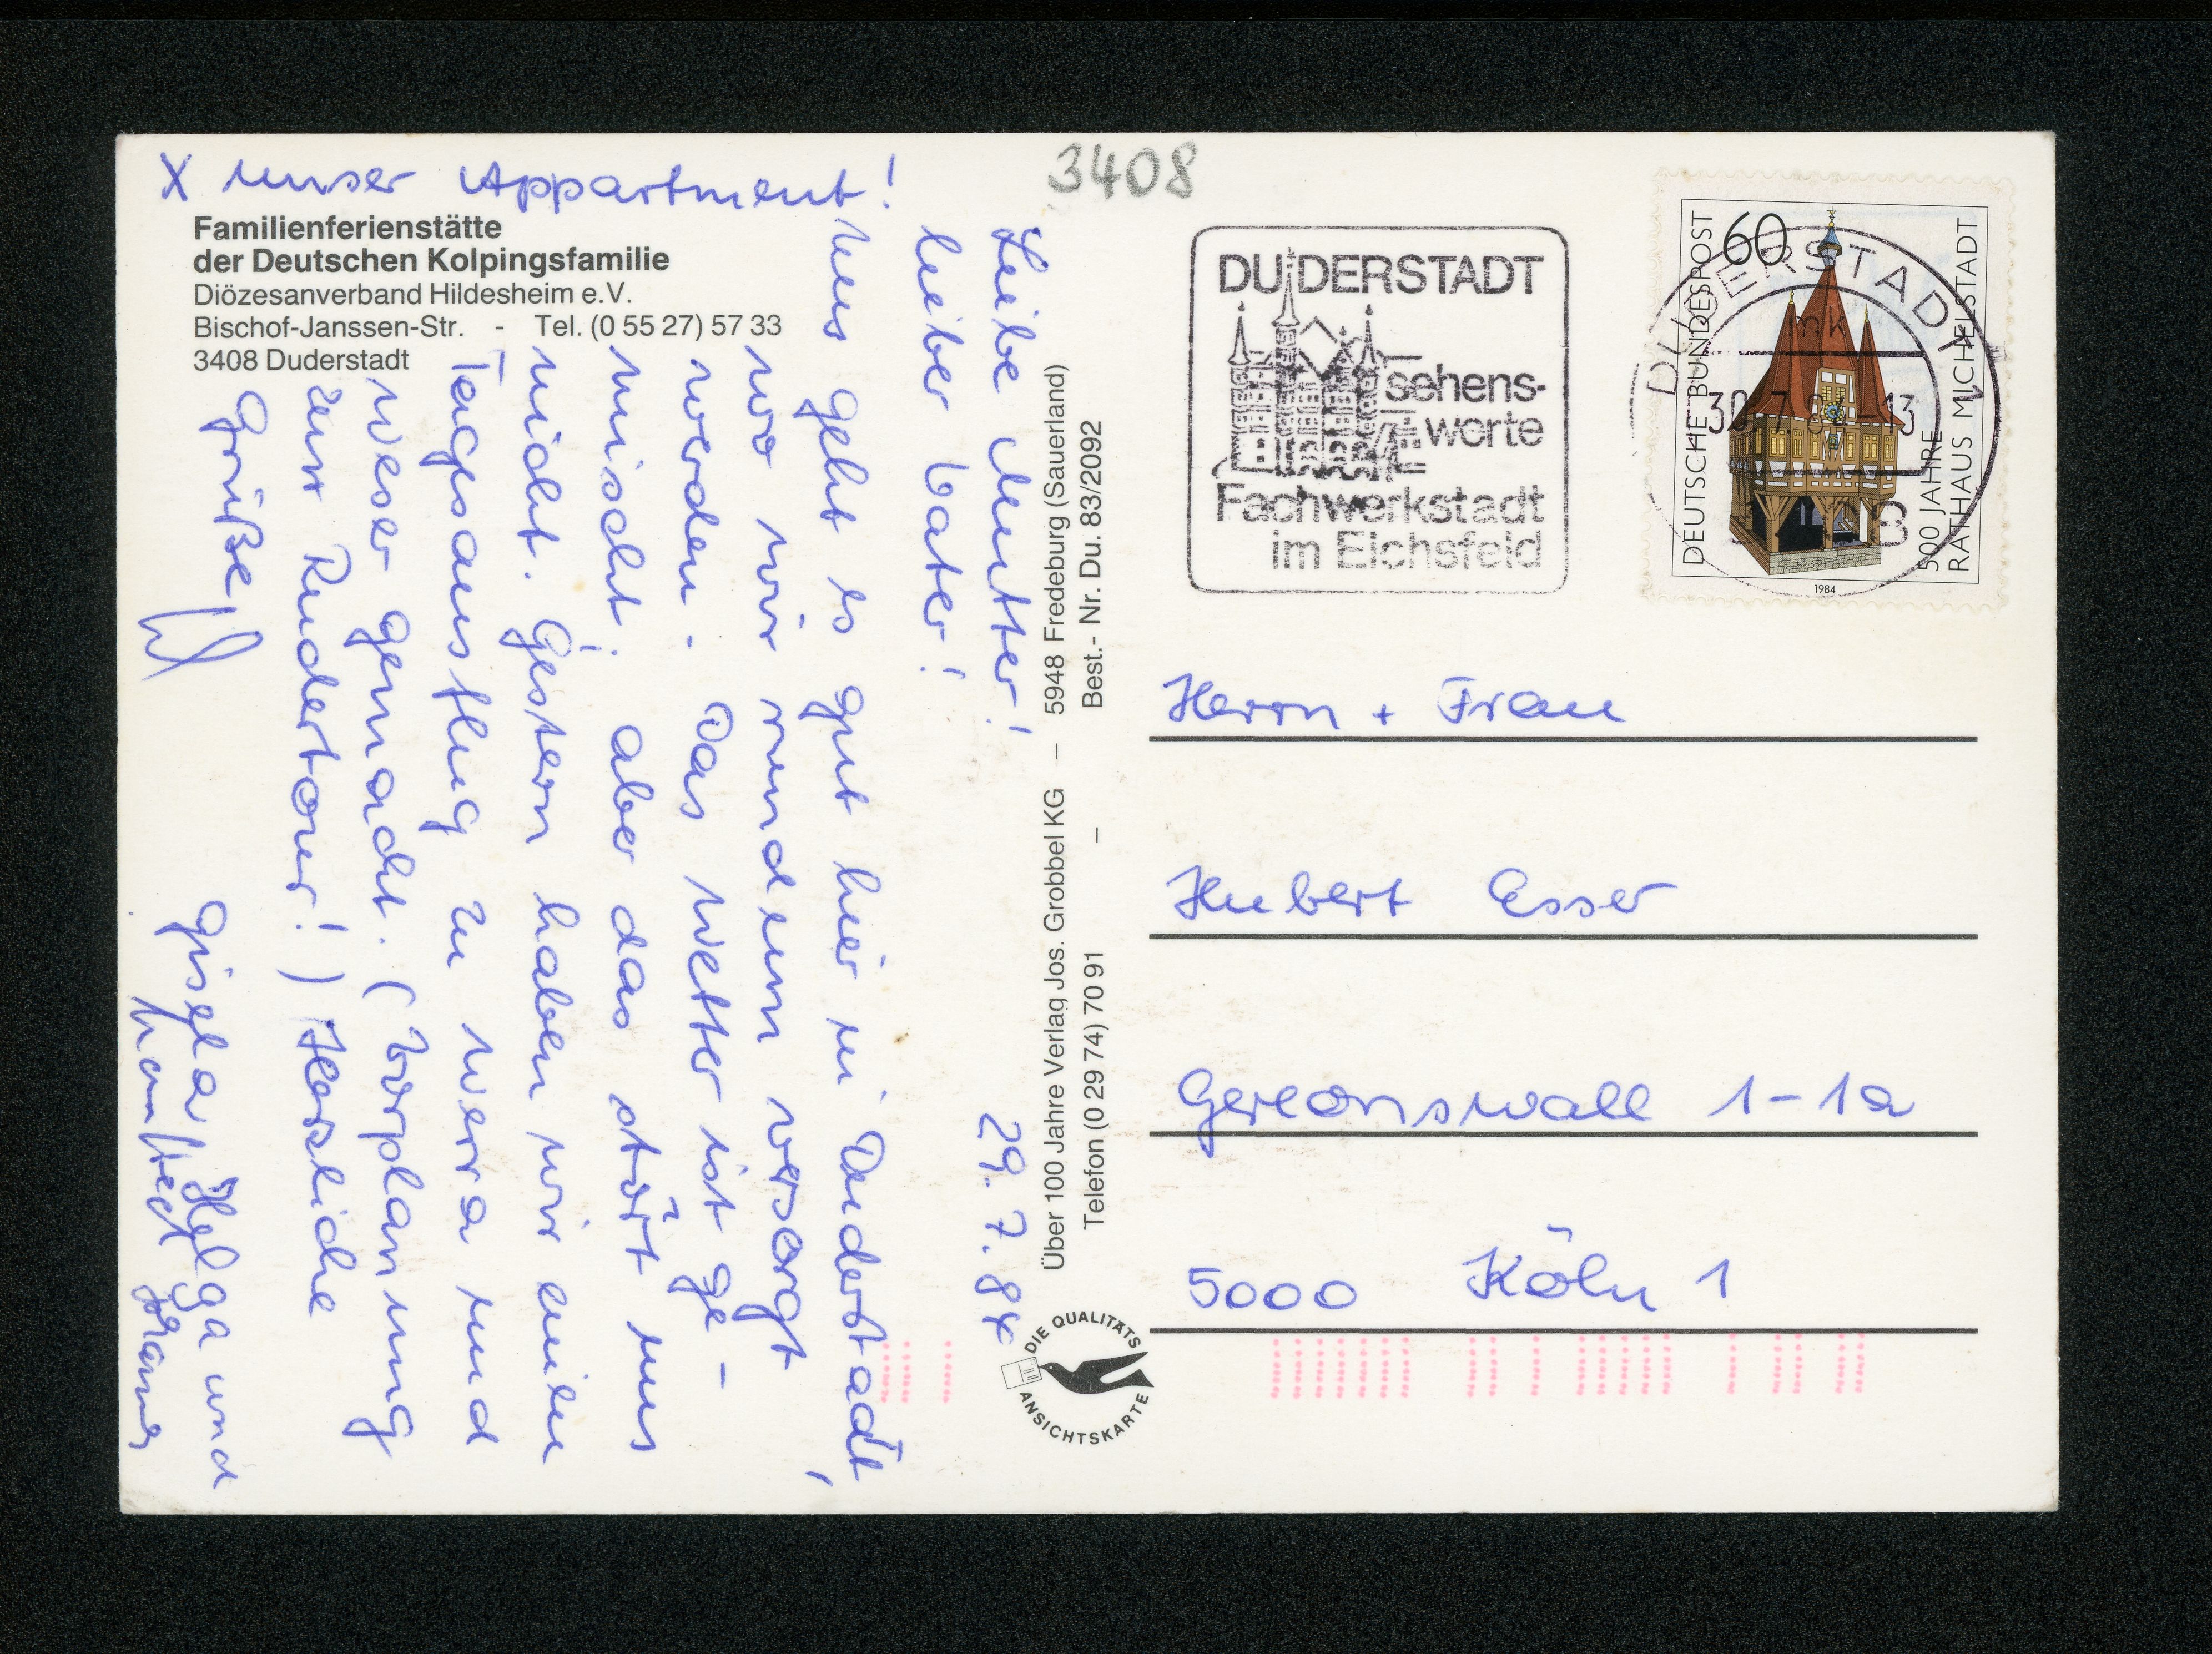 X unser Appartment!
Familienferienstätte
der Deutschen Kolpingsfamilie
Diözesanverband Hildesheim e.V.
Bischof-Janssen-Str. - Tel. (0 55 27) 57 33
3408 Duderstadt
29.7.84
Liebe Mutter!
lieber Vater!
Uns geht es gut hier in Duderstadt,
wo wir rundum versorgt
werden. Das Wetter ist ge-
mischt; aber das stört uns
nicht. Gestern haben wir einen
Tagesausflug zu Werra und
Weser gemacht. (Vorplanung
zur Rudertour!) Herzliche
Grüße,
Gisela, Helga und
Über 100 Jahre Verlag Jos. Grobbel KG – 5948 Fredeburg (Sauerland)
Telefon (0 29 74) 70 91 – Best.- Nr. Du. 83/2092
DIE QUALITÄTS
ANSICHTSKARTE
3408
DUDERSTADT
sehens-
werte
Fachwerkstadt
im Eichsfeld
60
DEUTSCHE BUNDESPOST
500 JAHRE
RATHAUS MICHELSTADT
1984
DUDERSTADT 1
mk
30.7.84-13
Herrn + Frau
Hubert Esser
Gereonswall 1-1a
5000 Köln 1